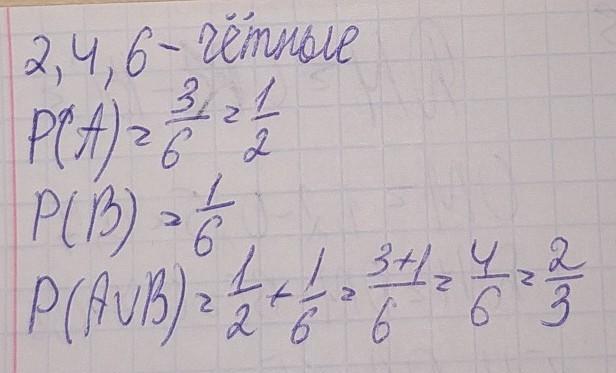 2, 4, 6 – чётные
P(A) = 3/6 = 1/2
P(B) = 1/6
P(A∪B) = 1/2 + 1/6 = 3+1/6 = 4/6 = 2/3